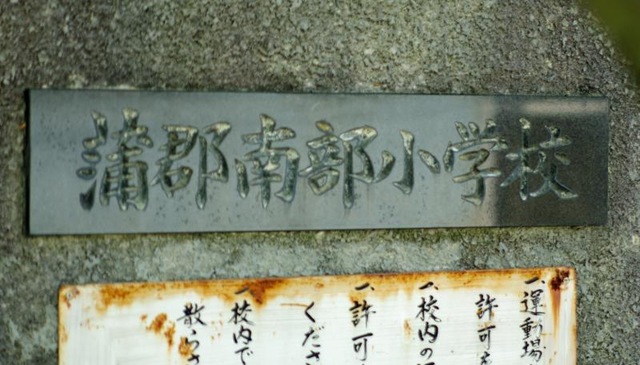 蒲郡南部小学校
一、運動場
許可を
一、校内の
一、許可
くださ
一、校内で
散らさ